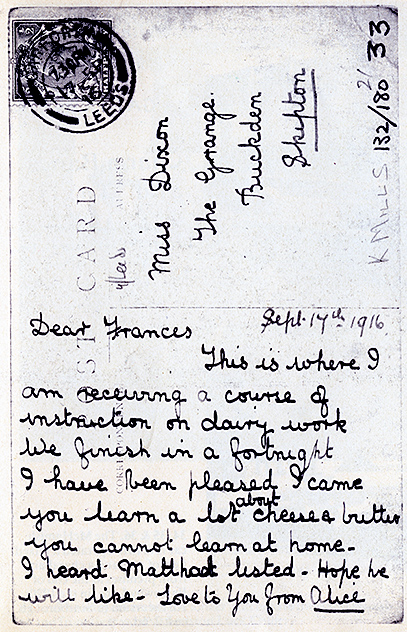 LEEDS
Miss Dixon
The Grange.
Buckden
Skipton
33
132/180
21
K MILLS
POST CARD
ADDRESS
Sept. 17th 1916
Dear Frances
This is where I
am receiving a course of
instruction on dairy work
We finish in a fortnight
I have been pleased I came
you learn a lot about cheese & butter
you cannot learn at home -
I heard Matt had listed - Hope he
will like - Love to You from Alice